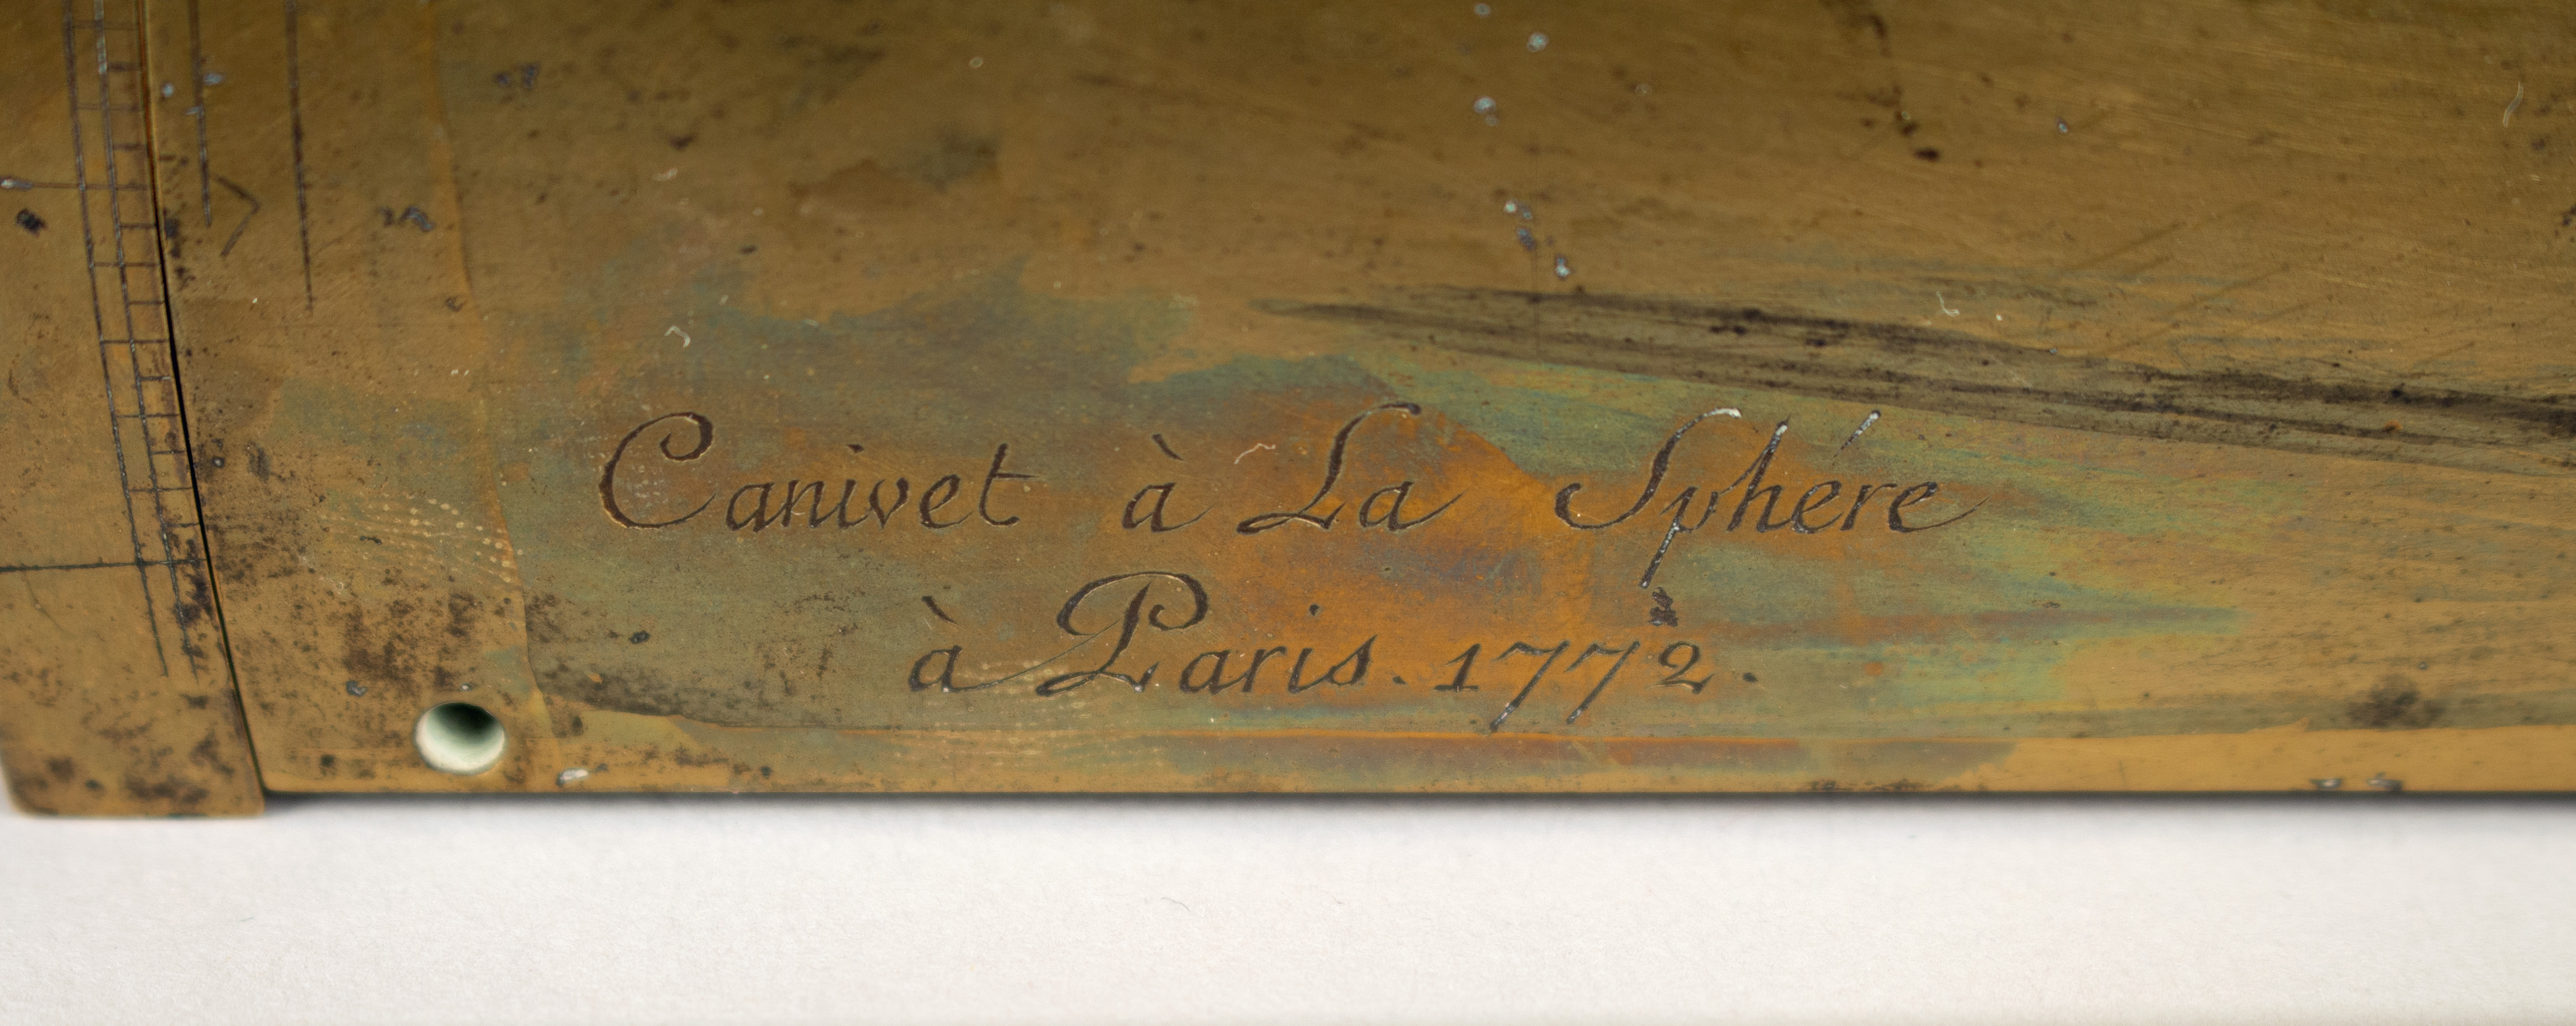 Canivet à La Sphére
à Paris. 1772.